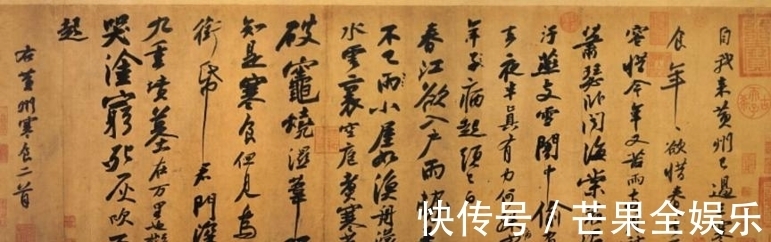 自我来黄州已過三
食年〻欲惜春
容惜今年又苦雨
蕭瑟卧聞海棠
汙燕支雪闇中偷
去夜半真有力何
年子病起頭已
春江欲入户雨勢
不已雨小屋如漁舟
水雲裏空庖煮寒
破竈燒濕葦
知是寒食但見烏
銜帋君門深
九重墳墓在万里也擬
哭塗窮死灰吹不
起
右黄州寒食二首
快传号/芒果全娱乐